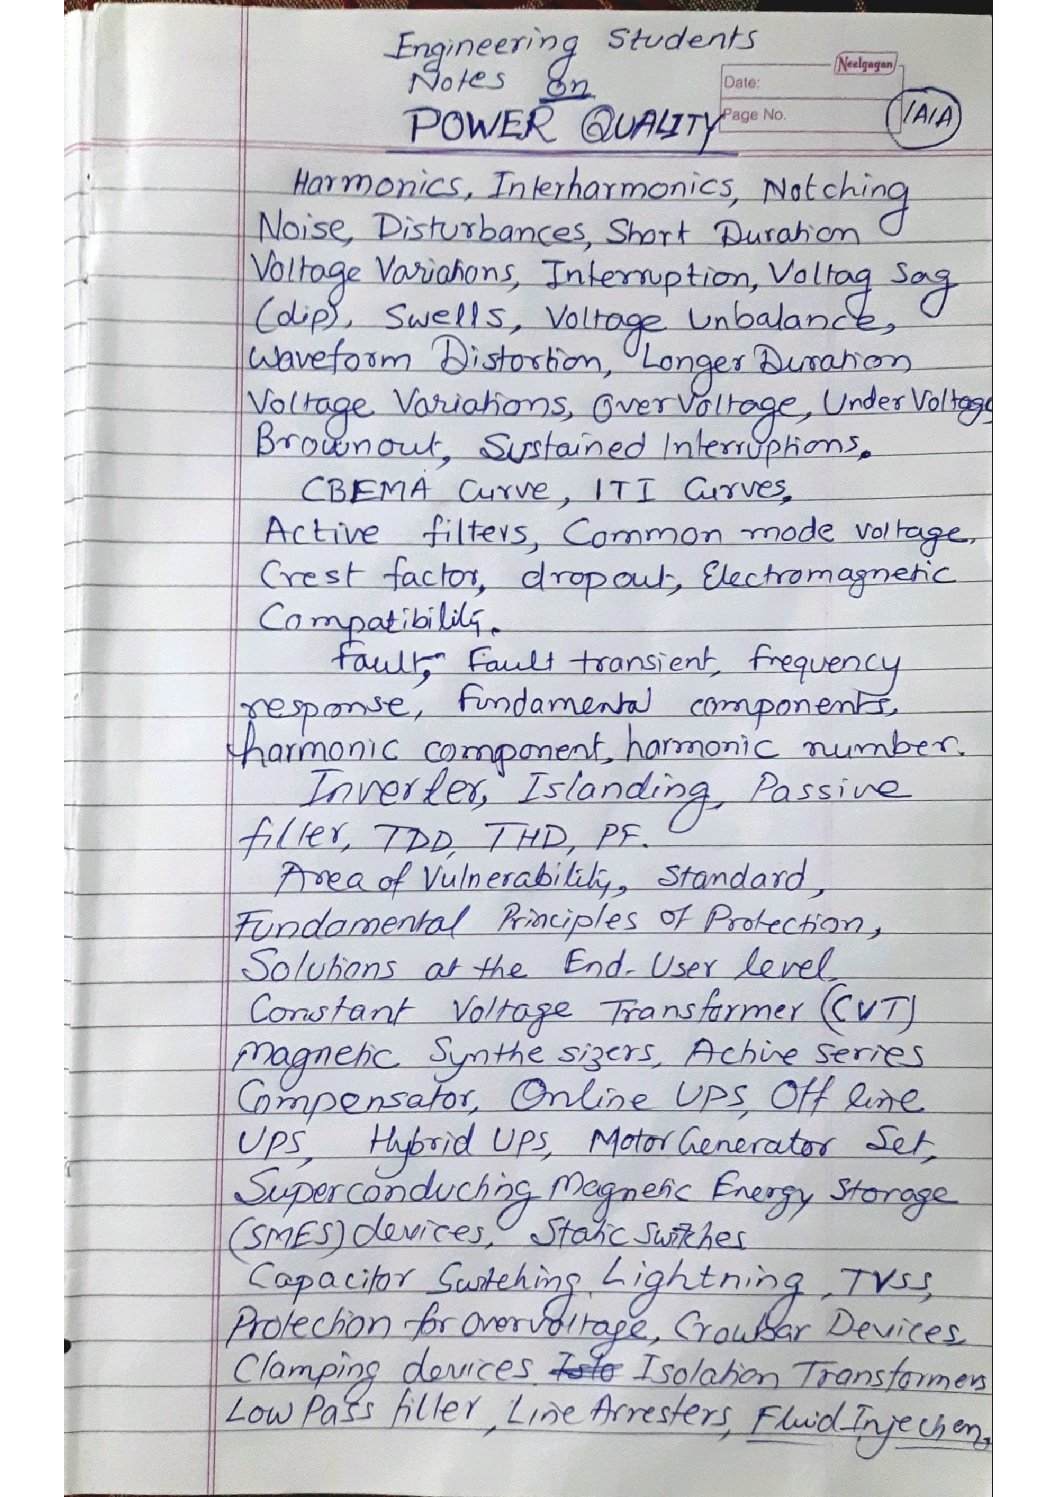 Engineering Students
Notes On
POWER QUALITY
Neelgagan
Date:
Page No.
1A1A
Harmonics, Interharmonics, Notching
Noise, Disturbances, Short Duration
Voltage Variations, Interruption, Voltag Sag
(dip), Swells, Voltage Unbalance,
Waveform Distortion, Longer Duration
Voltage Variations, Over Voltage, Under Voltage
Brownout, Sustained Interruptions.
CBEMA Curve, ITI Curves,
Active filters, Common mode voltage,
Crest factor, dropout, Electromagnetic
Compatibility.
fault, Fault transient, frequency
response, fundamental components,
harmonic component, harmonic number.
Inverter, Islanding, Passive
filter, TDD, THD, PF.
Area of Vulnerability, Standard,
Fundamental Principles of Protection,
Solutions at the End-User level
Constant Voltage Transformer (CVT)
Magnetic Synthesizers, Active Series
Compensator, Online UPS, Off line
UPS, Hybrid UPS, Motor Generator Set,
Superconducting Magnetic Energy Storage
(SMES) devices, Static Switches
Capacitor Switching, Lightning, TVSS,
Protection for overvoltage, Crowbar Devices,
Clamping devices Isolation Transformers
Low Pass filter, Line Arresters, Fluid Injection,